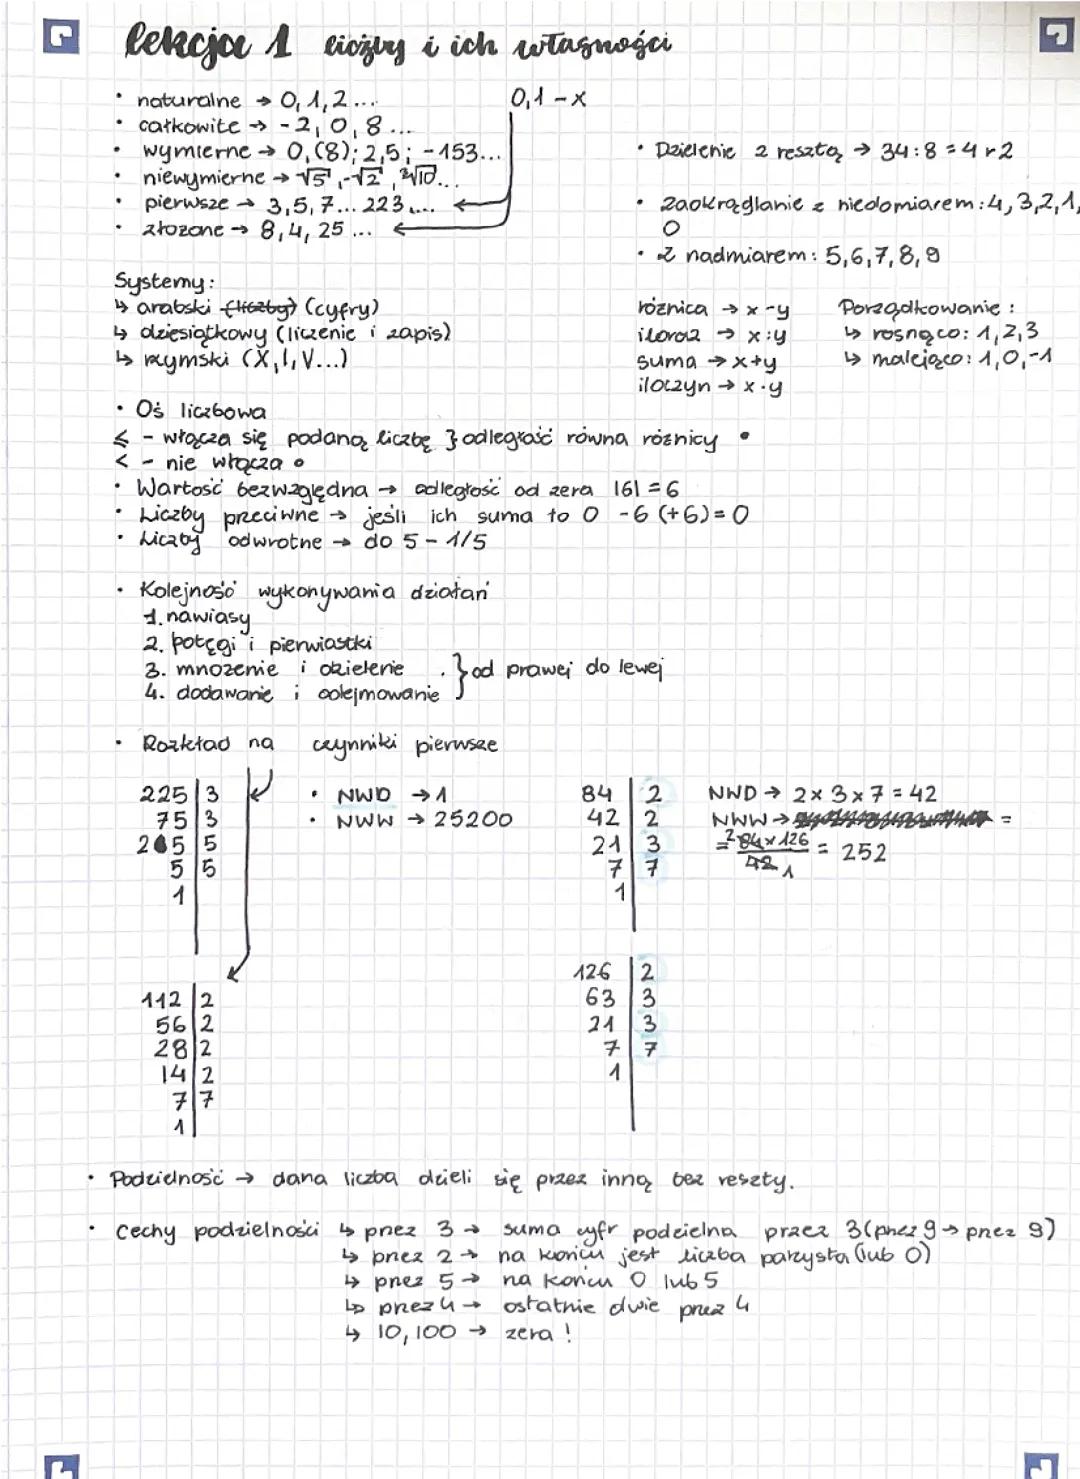 lekcja 1 liczby i ich własności
• naturalne → 0, 1, 2 ...
0,1 - x
• całkowite → -2, 0, 8 ...
• wymierne → 0,(8); 2,5; -153...
• niewymierne → √5, -√2, ³√10...
• pierwsze → 3, 5, 7... 223,... ←
• złożone → 8, 4, 25 ... ←
• Dzielenie z resztą → 34:8 = 4 r 2
• zaokrąglanie z niedomiarem: 4, 3, 2, 1,
0
• z nadmiarem: 5, 6, 7, 8, 9
Systemy:
↳ arabski (liczby) (cyfry)
↳ dziesiątkowy (liczenie i zapis)
↳ rzymski (X, I, V...)
różnica → x - y
iloraz → x : y
suma → x + y
iloczyn → x · y
Porządkowanie:
↳ rosnąco: 1, 2, 3
↳ malejąco: 1, 0, -1
• Oś liczbowa
≤ - włącza się podaną liczbę } odległość równa różnicy •
< - nie włącza ∘
• Wartość bezwzględna → odległość od zera |6| = 6
• Liczby przeciwne → jeśli ich suma to 0 -6 (+6) = 0
• Liczby odwrotne → do 5 - 1/5
• Kolejność wykonywania działań
1. nawiasy
2. potęgi i pierwiastki
3. mnożenie i dzielenie
4. dodawanie i odejmowanie
} od prawej do lewej
• Rozkład na czynniki pierwsze
225 | 3
75 | 3
25 | 5
5 | 5
1
• NWD → 1
• NWW → 25200
84 | 2
42 | 2
21 | 3
7 | 7
1
NWD → 2 × 3 × 7 = 42
NWW → =
= ²84 × 126 / 42 1 = 252
112 | 2
56 | 2
28 | 2
14 | 2
7 | 7
1
126 | 2
63 | 3
21 | 3
7 | 7
1
• Podzielność → dana liczba dzieli się przez inną bez reszty.
• Cechy podzielności ↳ przez 3 → suma cyfr podzielna przez 3 (przez 9 → przez 9)
↳ przez 2 → na końcu jest liczba parzysta (lub 0)
↳ przez 5 → na końcu 0 lub 5
↳ przez 4 → ostatnie dwie przez 4
↳ 10, 100 → zera!